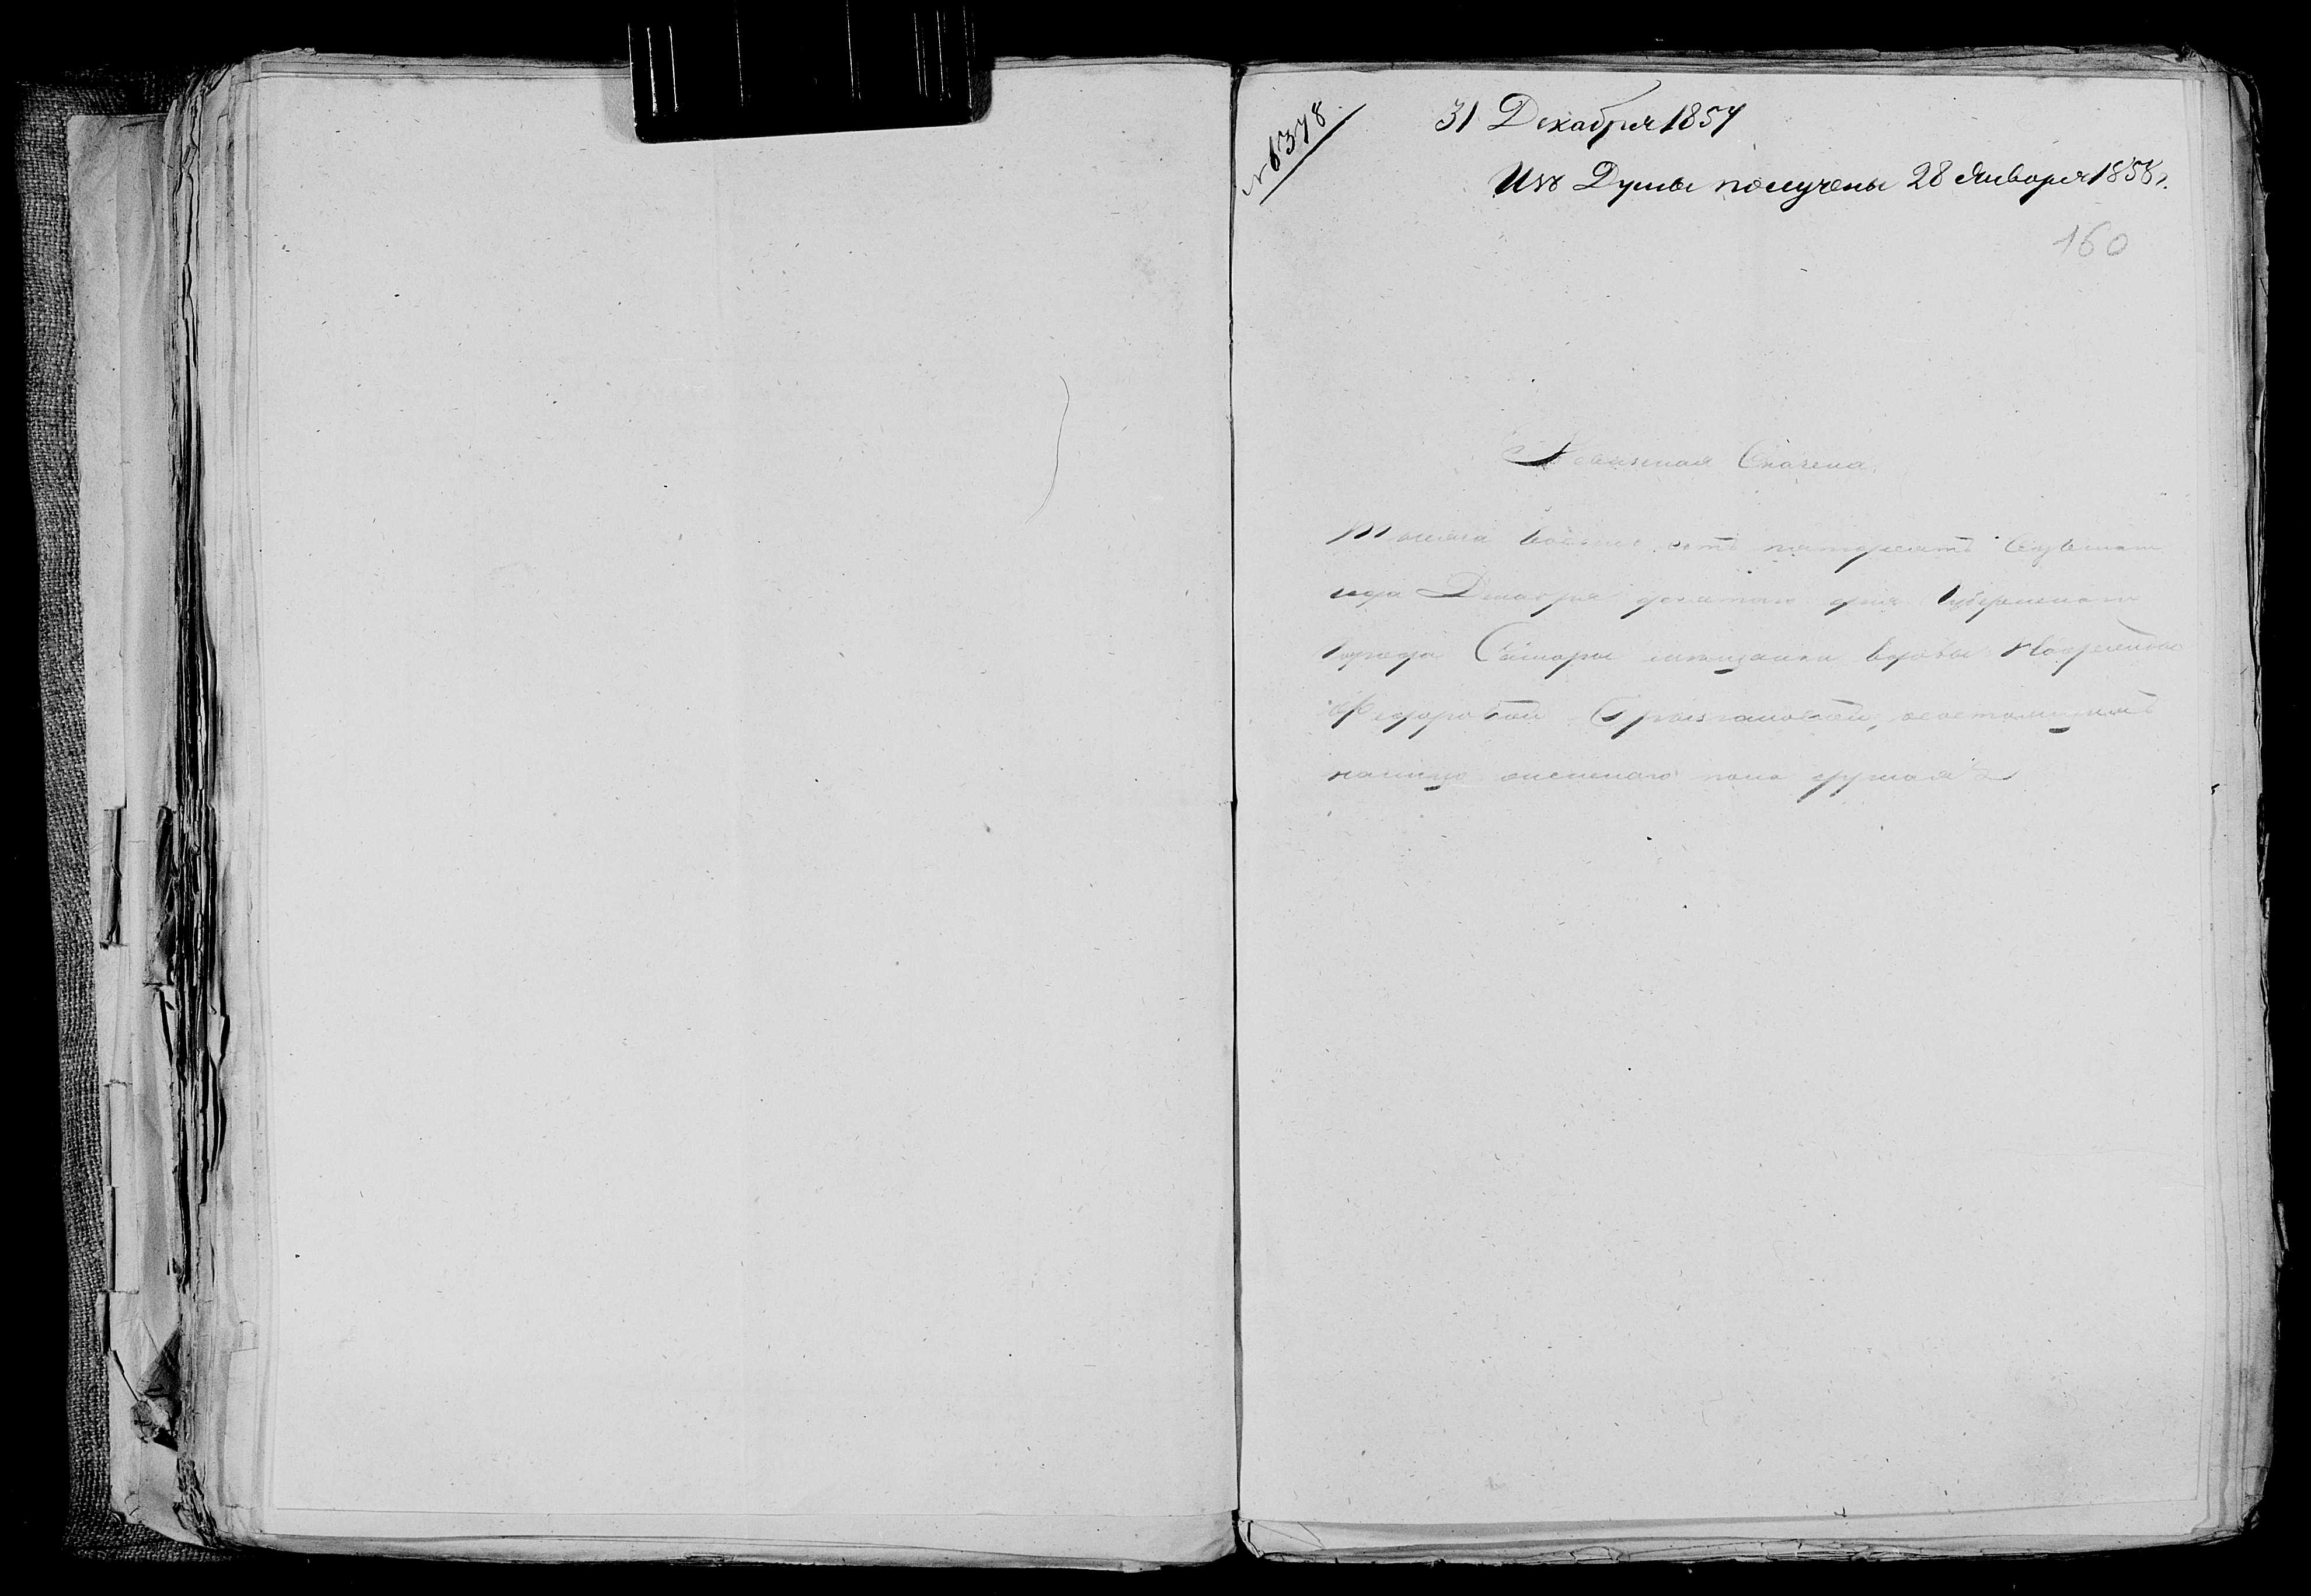 № 6378
31 Декабря 1857
Изъ Думы получены 28 Января 1858 г.
160
Ревизская Сказка
Тысяча восемь сотъ пятдесятъ седьмаго
года Декабря десятаго дня Губернскаго
города Самары мещанки вдовы
Федоровой состоящимъ
налицо женскаго пола душамъ